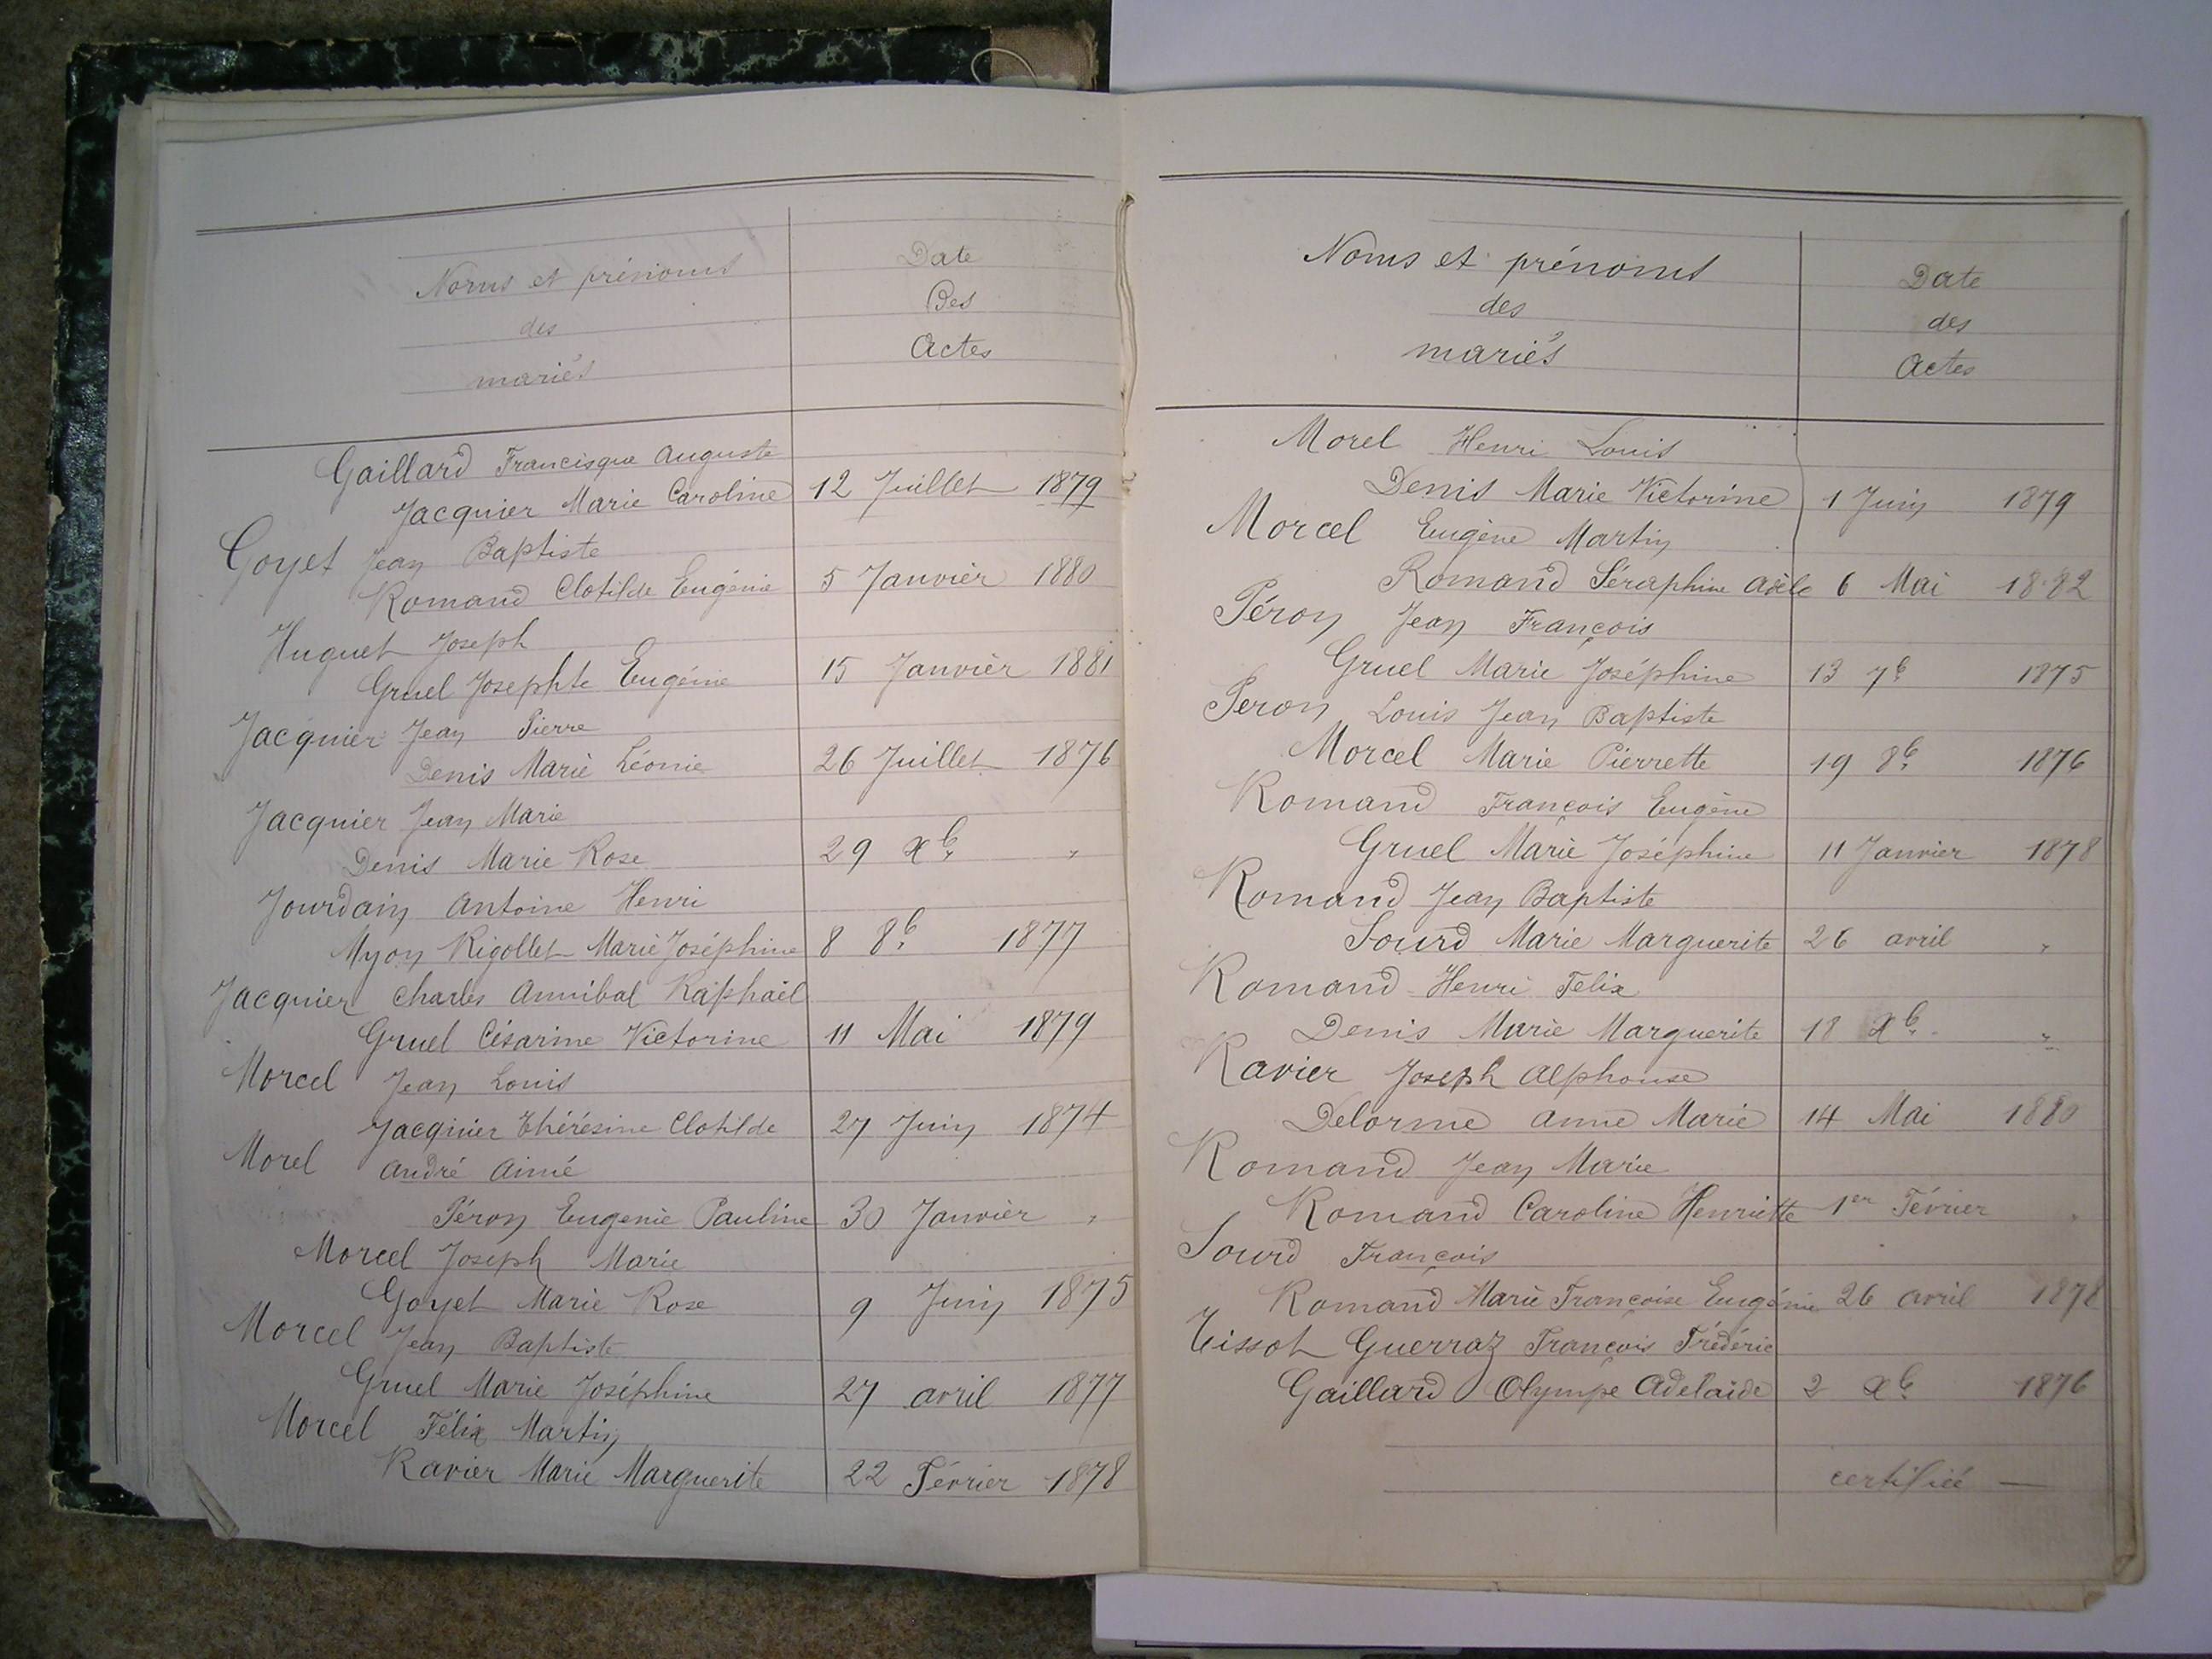 Noms et prénoms
des
mariés
Date
Des
Actes
Gaillard Francisque Auguste
Jacquier Marie Caroline 12 Juillet 1879
Goyet Jean Baptiste
Romand Clotilde Eugénie 5 Janvier 1880
Huguet Joseph
Gruel Josephte Eugénie 15 Janvier 1881
Jacquier Jean Pierre
Denis Marie Léonie 26 Juillet 1876
Jacquier Jean Marie
Denis Marie Rose 29 Xb. "
Jourdain Antoine Henri
Myon Rigollet Marie Joséphine 8 8b. 1877
Jacquier Charles Annibal Raphaël
Gruel Césarine Victorine 11 Mai 1879
Morcel Jean Louis
Jacquier Thérésine Clotilde 27 Juin 1874
Morel André Aimé
Péron Eugenie Pauline 30 Janvier "
Morcel Joseph Marie
Goyet Marie Rose 9 Juin 1875
Morcel Jean Baptiste
Gruel Marie Joséphine 27 avril 1877
Morcel Félix Martin
Ravier Marie Marguerite 22 Février 1878
Noms et prénoms
des
mariés
Date
des
Actes
Morel Henri Louis
Denis Marie Victorine 1 Juin 1879
Morcel Eugène Martin
Romand Séraphine Adèle 6 Mai 1882
Péron Jean François
Gruel Marie Joséphine 13 7b. 1875
Peron Louis Jean Baptiste
Morcel Marie Pierrette 19 8b. 1876
Romand François Eugène
Gruel Marie Joséphine 11 Janvier 1878
Romand Jean Baptiste
Sourd Marie Marguerite 26 avril "
Romand Henri Felix
Denis Marie Marguerite 18 Xb. "
Ravier Joseph Alphonse
Delorme Anne Marie 14 Mai 1880
Romand Jean Marie
Romand Caroline Henriette 1er Février "
Sourd François
Romand Marie Françoise Eugénie 26 avril 1878
Tissot Guerraz François Frédéric
Gaillard Olympe Adelaïde 2 Xb. 1876
certifiée —